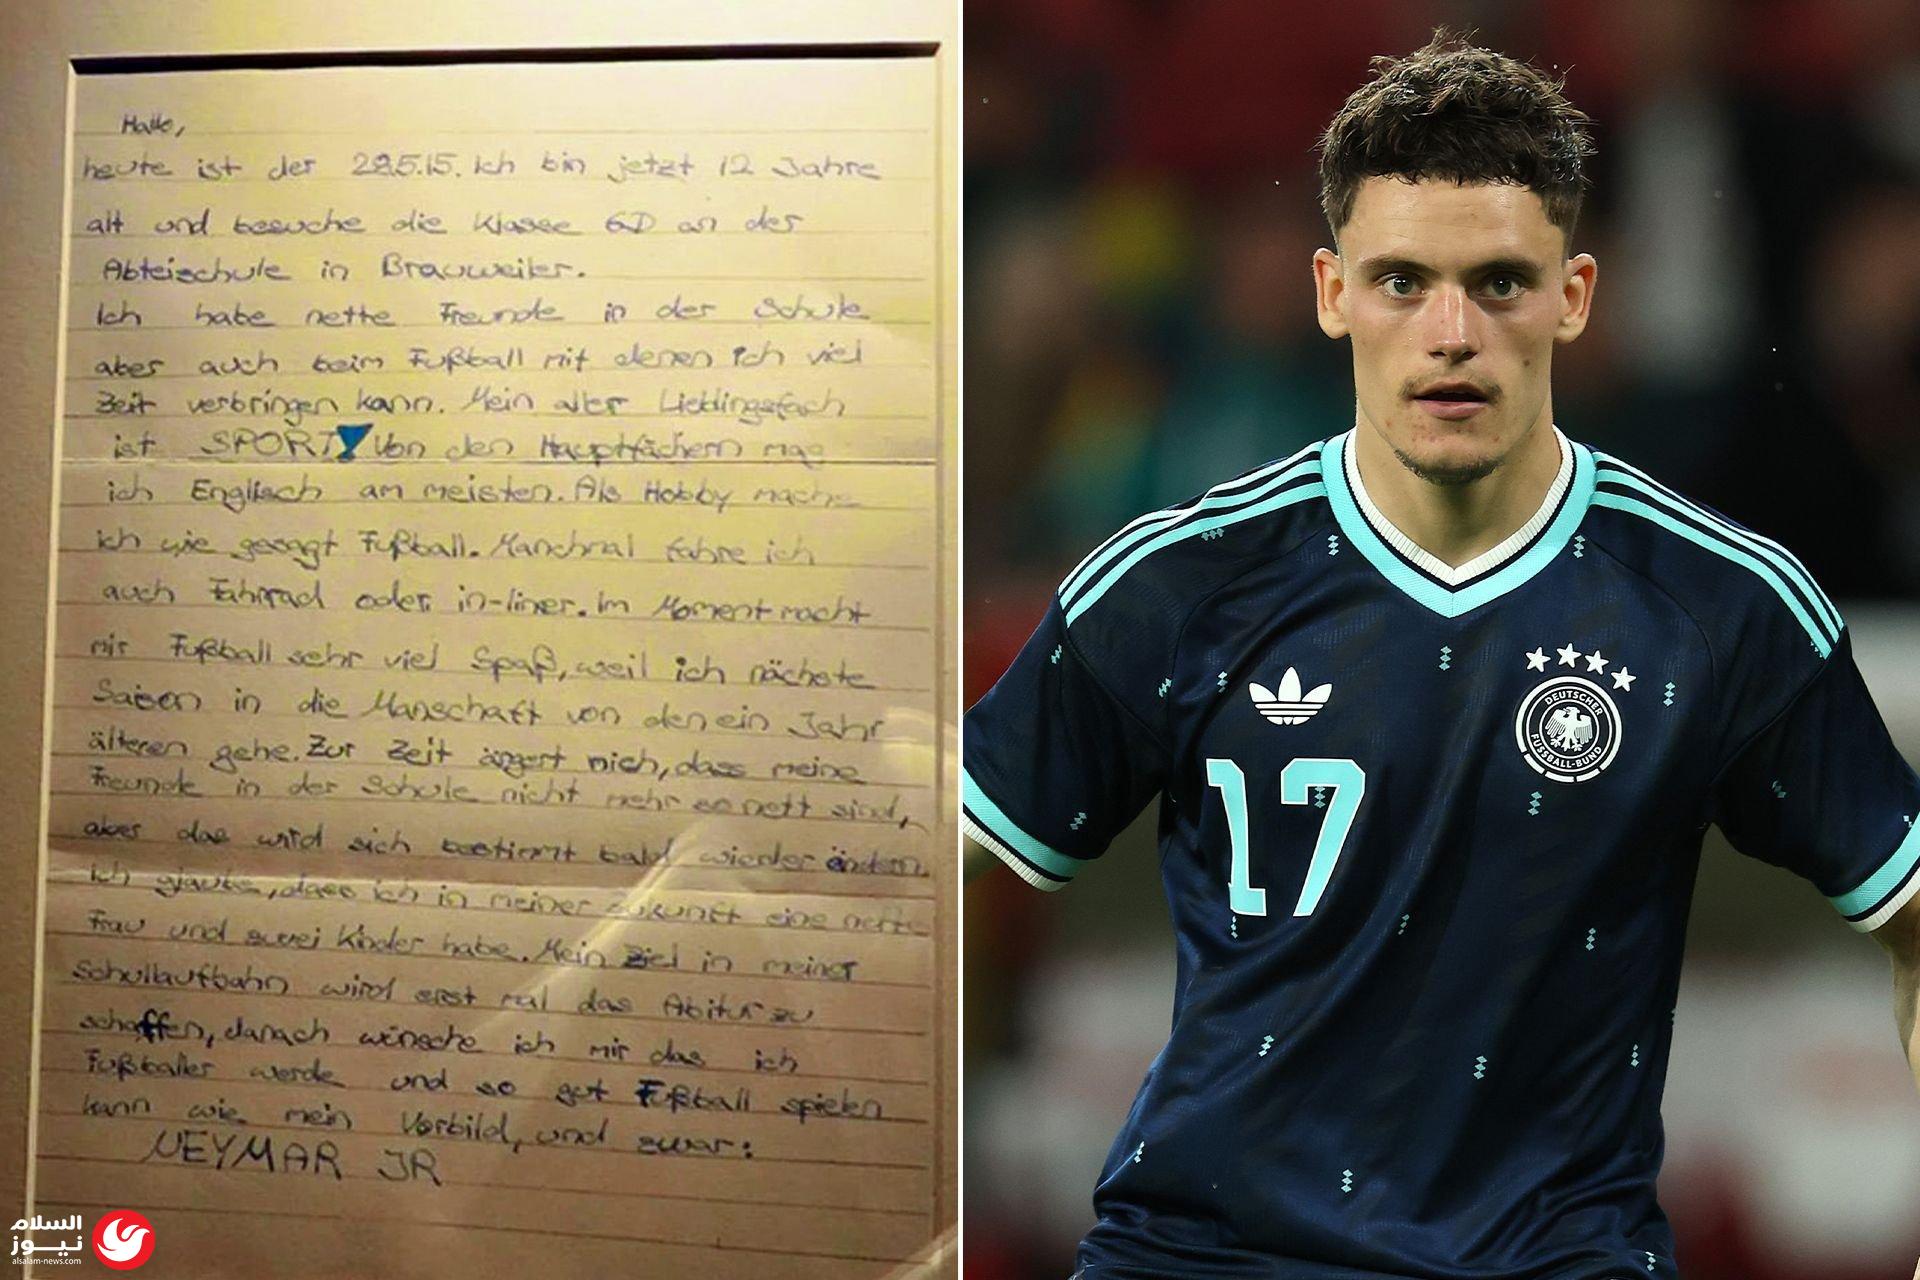 Hallo,
heute ist der 28.5.15. Ich bin jetzt 12 Jahre
alt und besuche die Klasse 6D an der
Abteischule in Brauweiler.
Ich habe nette Freunde in der Schule
aber auch beim Fußball mit denen ich viel
Zeit verbringen kann. Mein aller Lieblingsfach
ist SPORT! Von den Hauptfächern mag
ich Englisch am meisten. Als Hobby mache
ich wie gesagt Fußball. Manchmal fahre ich
auch Fahrrad oder in-liner. Im Moment macht
mir Fußball sehr viel Spaß, weil ich nächste
Saison in die Manschaft von den ein Jahr
älteren gehe. Zur Zeit ärgert mich, dass meine
Freunde in der Schule nicht mehr so nett sind,
aber das wird sich bestimmt bald wieder ändern.
Ich glaube, dass ich in meiner zukunft eine nette
Frau und zwei Kinder habe. Mein Ziel in meiner
Schullaufbahn wird erst mal das Abitur zu
schaffen, danach wünsche ich mir das ich
Fußballer werde und so gut Fußball spielen
kann wie mein Vorbild, und zwar:
NEYMAR JR
السلام
نيوز
alsalam-news.com
DEUTSCHER
FUSSBALL-BUND
17